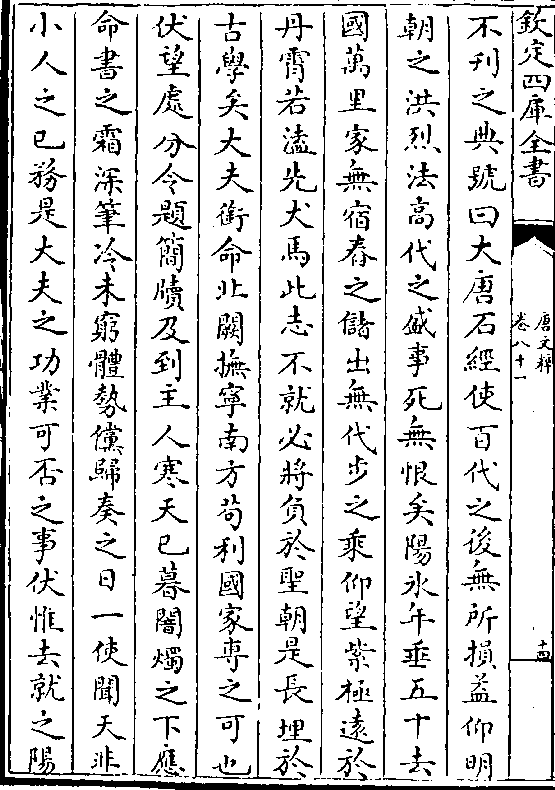 欽定四庫全書
唐文粹
卷八十一
十四
不刊之典號曰大唐石經使百代之後無所損益仰明
朝之洪烈法高代之盛事死無恨矣陽氷年垂五十去
國萬里家無宿舂之儲出無代步之乘仰望紫極遠於
丹霄若溘先犬馬此志不就必將負於聖朝是長埋於
古學矣大夫銜命北闕撫寧南方苟利國家専之可也
伏望處分令題簡牘及到主人寒天已暮闇燭之下應
命書之霜深筆冷未窮體勢儻歸奏之日一使聞天非
小人之已務是大夫之功業可否之事伏惟去就之陽